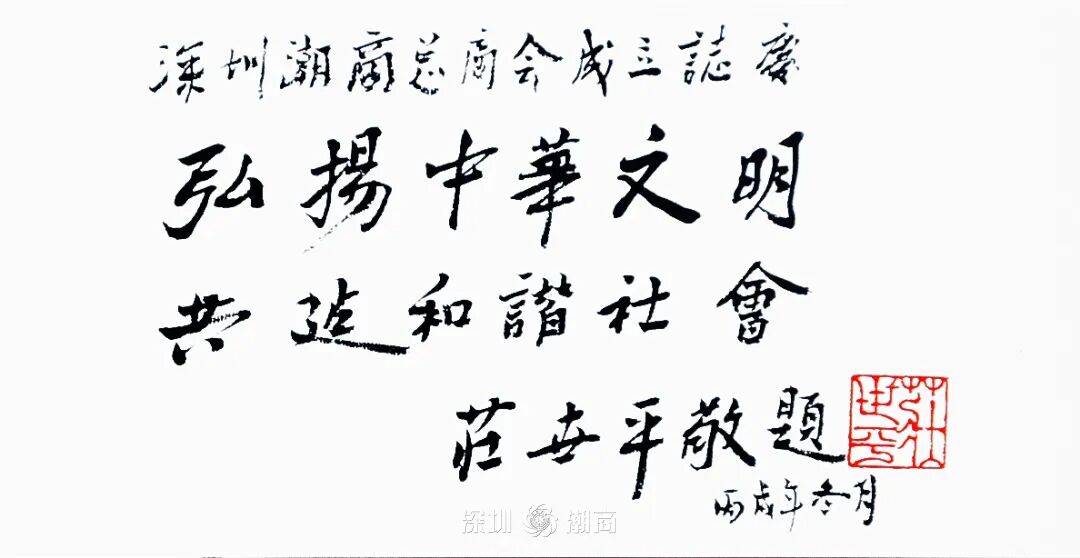 深圳潮商总商会成立誌慶
弘揚中華文明
共建和諧社會
莊世平敬題
莊世平
丙戌年冬月
深圳潮商